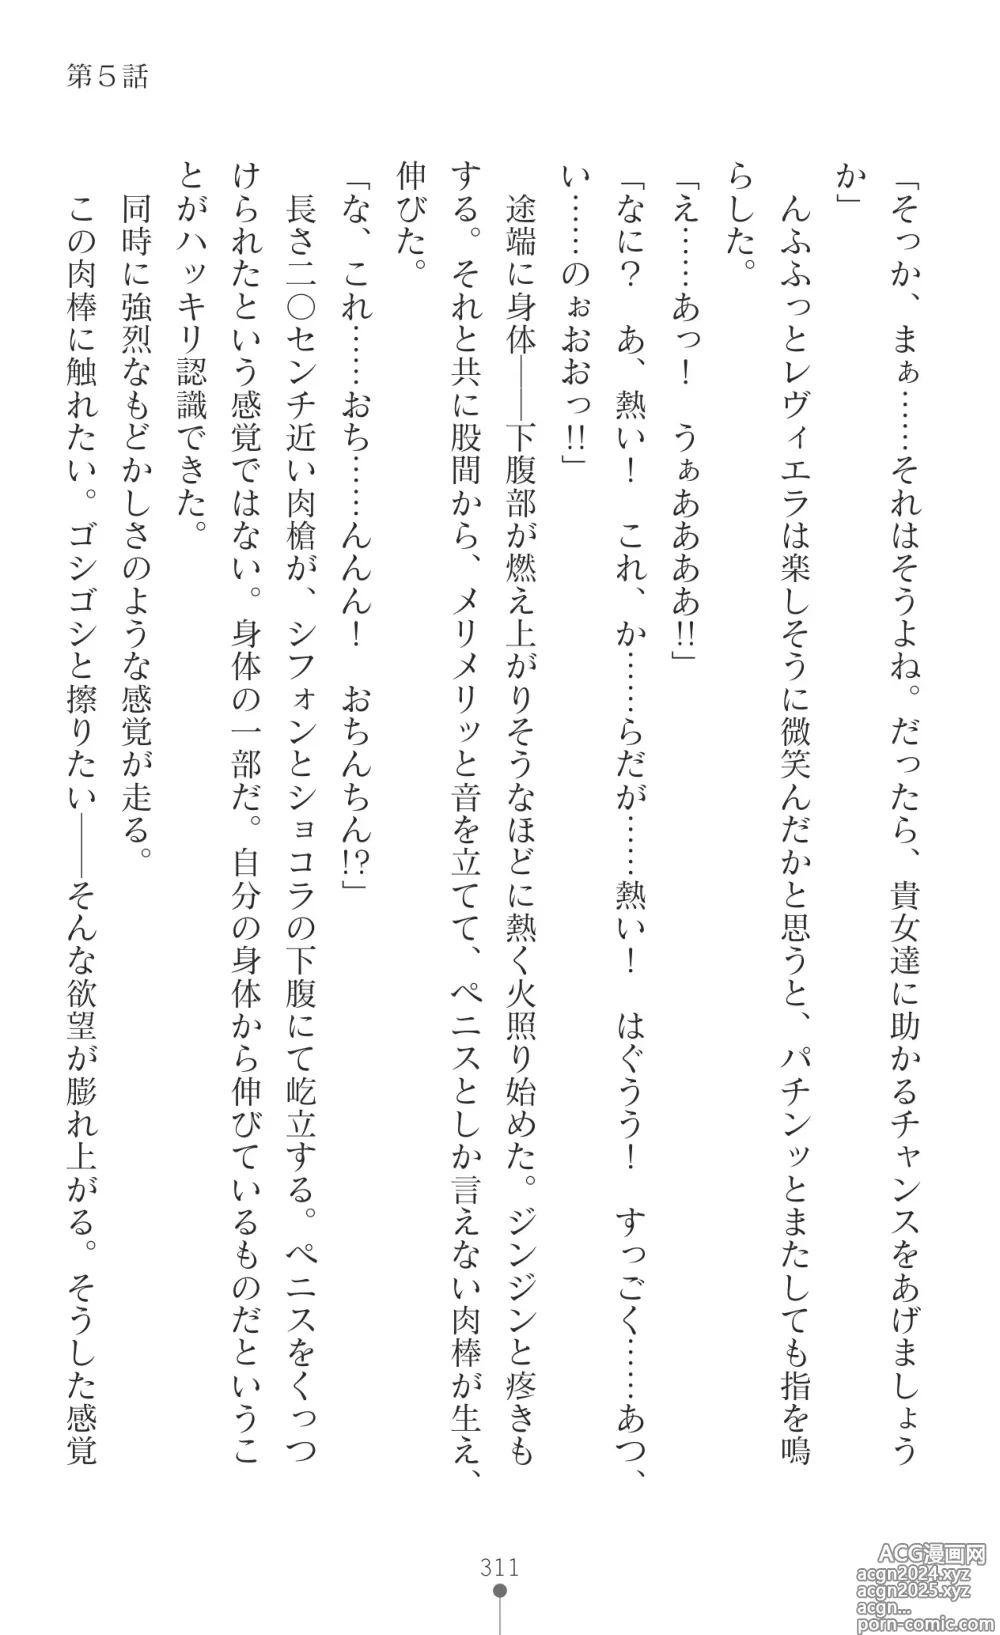 第5話
「そっか、まぁ……それはそうよね。だったら、貴女達に助かるチャンスをあげましょう
か」
んふふっとレヴィエラは楽しそうに微笑んだかと思うと、パチンッとまたしても指を鳴
らした。
「え……あっ！　うぁあああ‼」
「なに？　あ、熱い！　これ、か……らだが……熱い！　はぐうう！　すっごく……あつ、
い……のぉおおっ‼」
途端に身体――下腹部が燃え上がりそうなほどに熱く火照り始めた。ジンジンと疼きも
する。それと共に股間から、メリメリッと音を立てて、ペニスとしか言えない肉棒が生え、
伸びた。
「な、これ……おち……んんん！　おちんちん⁉」
長さ二〇センチ近い肉槍が、シフォンとショコラの下腹にて屹立する。ペニスをくっつ
けられたという感覚ではない。身体の一部だ。自分の身体から伸びているものだというこ
とがハッキリ認識できた。
同時に強烈なもどかしさのような感覚が走る。
この肉棒に触れたい。ゴシゴシと擦りたい――そんな欲望が膨れ上がる。そうした感覚
311
ACG漫画网
acgn2024.xyz
acgn2025.xyz
acgn...
porn-comic.com